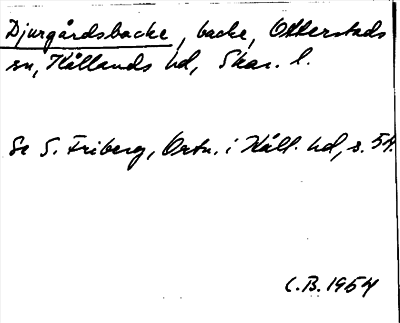 Djurgårdsbacke, backe, Otterstads
sn, Kållands hd, Skar. l.
Se S. Friberg, Ortn. i Kåll. hd, s. 54.
C.B. 1954